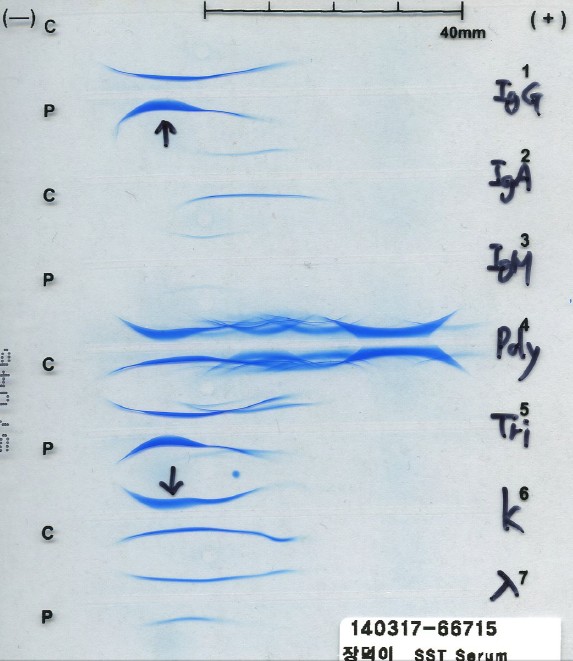 (—) (+)
C
40mm
1
IgG
P
2
IgA
C
3
IgM
P
4
Poly
C
5
Tri
P
6
k
C
7
λ
P
140317-66715
장덕이 SST Serum